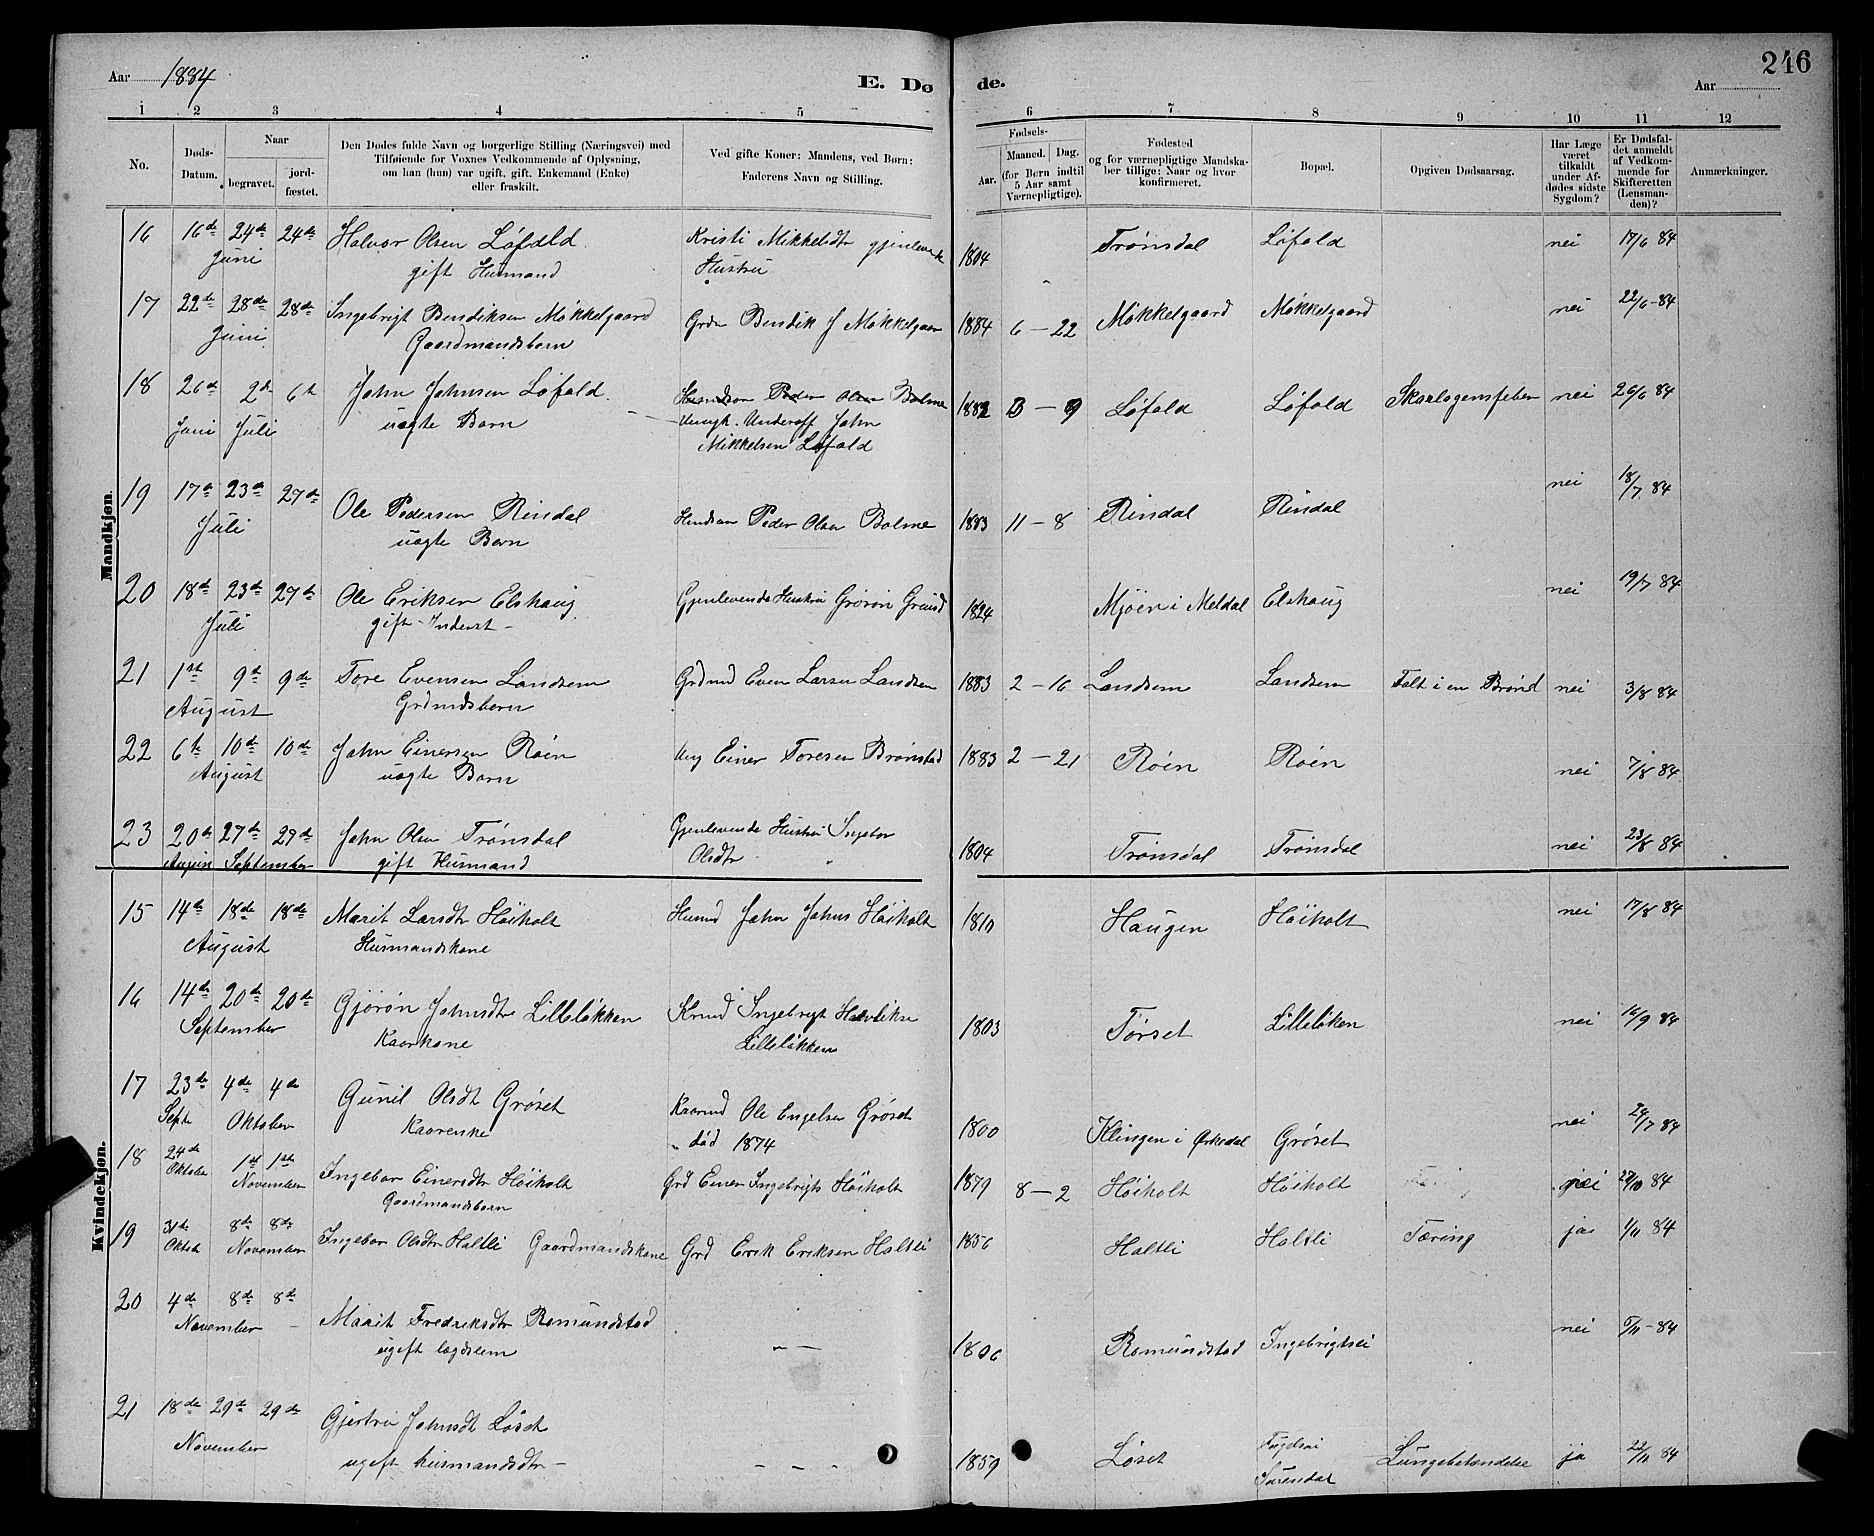 Aar 1884
E. Dø
de.
Aar
246
1 2 3 4 5 6 7 8 9 10 11 12
No.
Døds-Datum.
Naar
begravet.
jord-fæstet.
Den Dødes fulde Navn og borgerlige Stilling (Næringsvei) med
Tilføiende for Voxnes Vedkommende af Oplysning,
om han (hun) var ugift, gift, Enkemand (Enke)
eller fraskilt.
Ved gifte Koner: Mandens, ved Børn:
Faderens Navn og Stilling.
Fødsels-
Aar.
Maaned.
Dag.
(for Børn indtil
5 Aar samt
Værnepligtige).
Fødested
og for værnepligtige Mandska-
ber tillige: Naar og hvor
konfirmeret.
Bopæl.
Opgiven Dødsaarsag.
Har Læge
været
tilkaldt
under Af-
dødes sidste
Sygdom?
Er Dødsfal-
det anmeldt
af Vedkom-
mende for
Skifteretten
(Lensman-
den)?
Anmærkninger.
Mandkjøn.
16 16de 24de 24de Halvor Olsen Løfald Kristi Mikkelsdtr gjenlevende 1804 Trønsdal Løfald nei 17/6 84
Juni gift Husmand Hustru
17 22de 28de 28de Ingebrigt Bendiksen Møkkelgaard Grdm Bendik J Møkkelgaar 1884 6 - 22 Møkkelgaard Møkkelgaard nei 22/6 - 84
Juni Gaardmandsbarn
18 26de 2de 6te John Johnsen Løfald Husmdsøn Peder Olsen Bolme 1882 3 - 9 Løfald Løfald Skarlagensfeber nei 26/6 84
Juni Juli uægte Barn Ungk. Underoff John
Mikkelsen Løfald
19 17de 23de 27de Ole Pedersen Rindal Husdsøn Peder Olsen Bolme 1883 11 - 8 Rindal Rindal nei 18/7 84
Juli uægte Barn
20 18de 23de 27de Ole Eriksen Elshaug Gjenlevende Hustru Grørøn 1824 Mjøen i Meldal Elshaug nei 19/7 84
Juli gift - Inderst -
21 1st 9de 9de Tore Evensen Landsem Grdmd Even Larsen Landsem 1883 2 - 16 Landsem Landsem Falt i en Brønd nei 3/8 84
August Grdmdsbarn
22 6te 10de 10de John Einersen Røen Ung Einer Toresen Brønstad 1883 2 - 21 Røen Røen nei 7/8 84
August uægte Barn
23 20de 27de 27de John Olsen Trønsdal Gjenlevende Hustru Ingebor 1804 Trønsdal Trønsdal nei 23/8 84
August September gift Husmand Olsdtr
Kvindekjøn.
15 14de 18de 18de Marit Larsdtr Høiholt Husmd John Johns Høiholt 1810 Haugen Høiholt nei 17/8 84
August Husmandskone
16 14de 20de 20de Gjørøn Johnsdtr Lilleløkken Ingebrigt 1803 Tørset Lilleløken nei 16/9 84
September Kaarkone Lilleløkken
17 23de 4de 4de Gunil Olsdt Grøset Kaarmd Ole Engelsen Grøset 1800 Klingen i Ørkedal Grøset nei
Septe Oktober Kaarenke død 1874
18 24de 1st 1ste Ingebor Einersdtr Høiholt Grd Einer Ingebrigts Høiholt 1879 8 - 2 Høiholt Høiholt nei 27/10 84
Oktober November Gaardmandsbarn
19 31te 8de 8de Ingebor Olsdtr Haltli Gaardmandskone Grd Erik Eriksen Haltli 1856 Haltli Haltli Tæring ja 1/11 84
Oktob November
20 4de 8de 8de Marit Fredriksdtr Romundstad - - 1806 Romundstad Ingebrigtsei nei 5/11 - 84
November ugift lægdslem
21 18de 29de 29de Gjertru Johnsdt Løset - - - 1859 Løset Lungebetændelse ja 22/11 84
November ugift husmandsdtr - Surendal